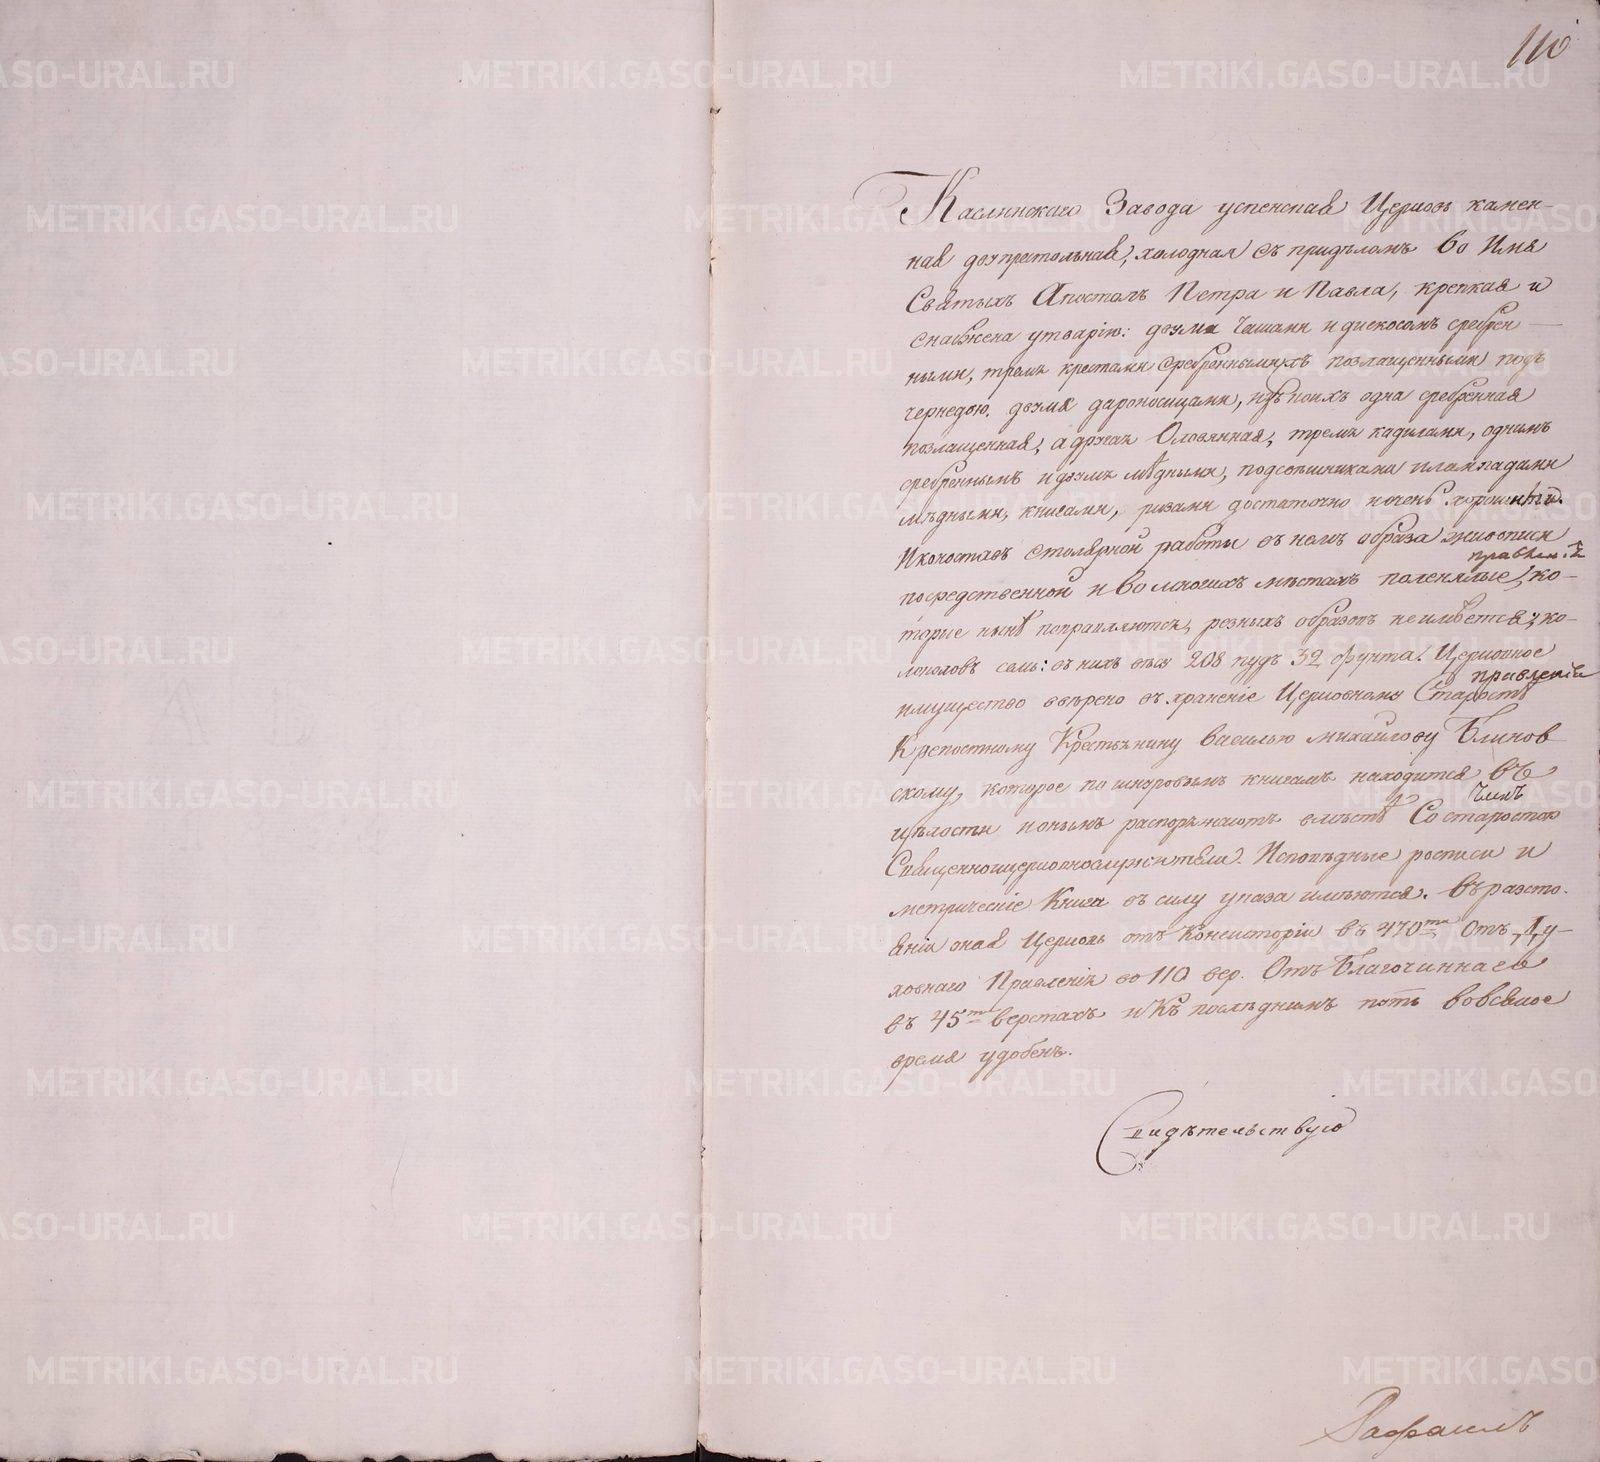 110
Каслинскаго Завода успенская Церковь камен-
ная двупрестольная, холодная съ придѣломъ во Имя
Святыхъ Апостолъ Петра и Павла, крепкая и
снабжена утварію: двумя Чашами и дискосомъ сребрен
ными, тремя крестами Сребренными позлащенными подъ
чернедью, двумя дароносицами, изъ коихъ одна сребренная
позлащенная, а другая Оловянная, тремя кадилами, однимъ
сребреннымъ и двумя мѣдными, подсвѣшниками и лампадами
мѣдными, книгами, ризами достаточно и очень
Иконостасъ Столярной работы въ немъ образа живописи
посредственной и во многихъ мѣстахъ поленялые, ко-
торые нынѣ поправляются, резныхъ образовъ неимѣется, ко-
локоловъ семь: въ нихъ вѣсу 208 пудъ 32 фунта. Церковное
правленіи
имущество ввѣрено въ храненіе Церковному Старостѣ
Крепостному Крестьянину Василью михайлову Блинов
скому, которое по шнуровымъ книгамъ находится въ
цѣлости и онымъ распоряжаютъ вмѣстѣ Со старостою
Священноицерковнослужители. Исповѣдные росписи и
метрическіе Книги въ силу указа имѣются. Въ разсто-
яніи оная Церковь отъ Консисторіи въ 470ти Отъ Ду-
ховнаго Правленія во 110 вер. Отъ Благочиннаго
въ 45ти верстахъ и Къ послѣднимъ путь вовсякое
время удобенъ.
Свидѣтельствую
Рафаилъ
METRIKI.GASO-URAL.RU